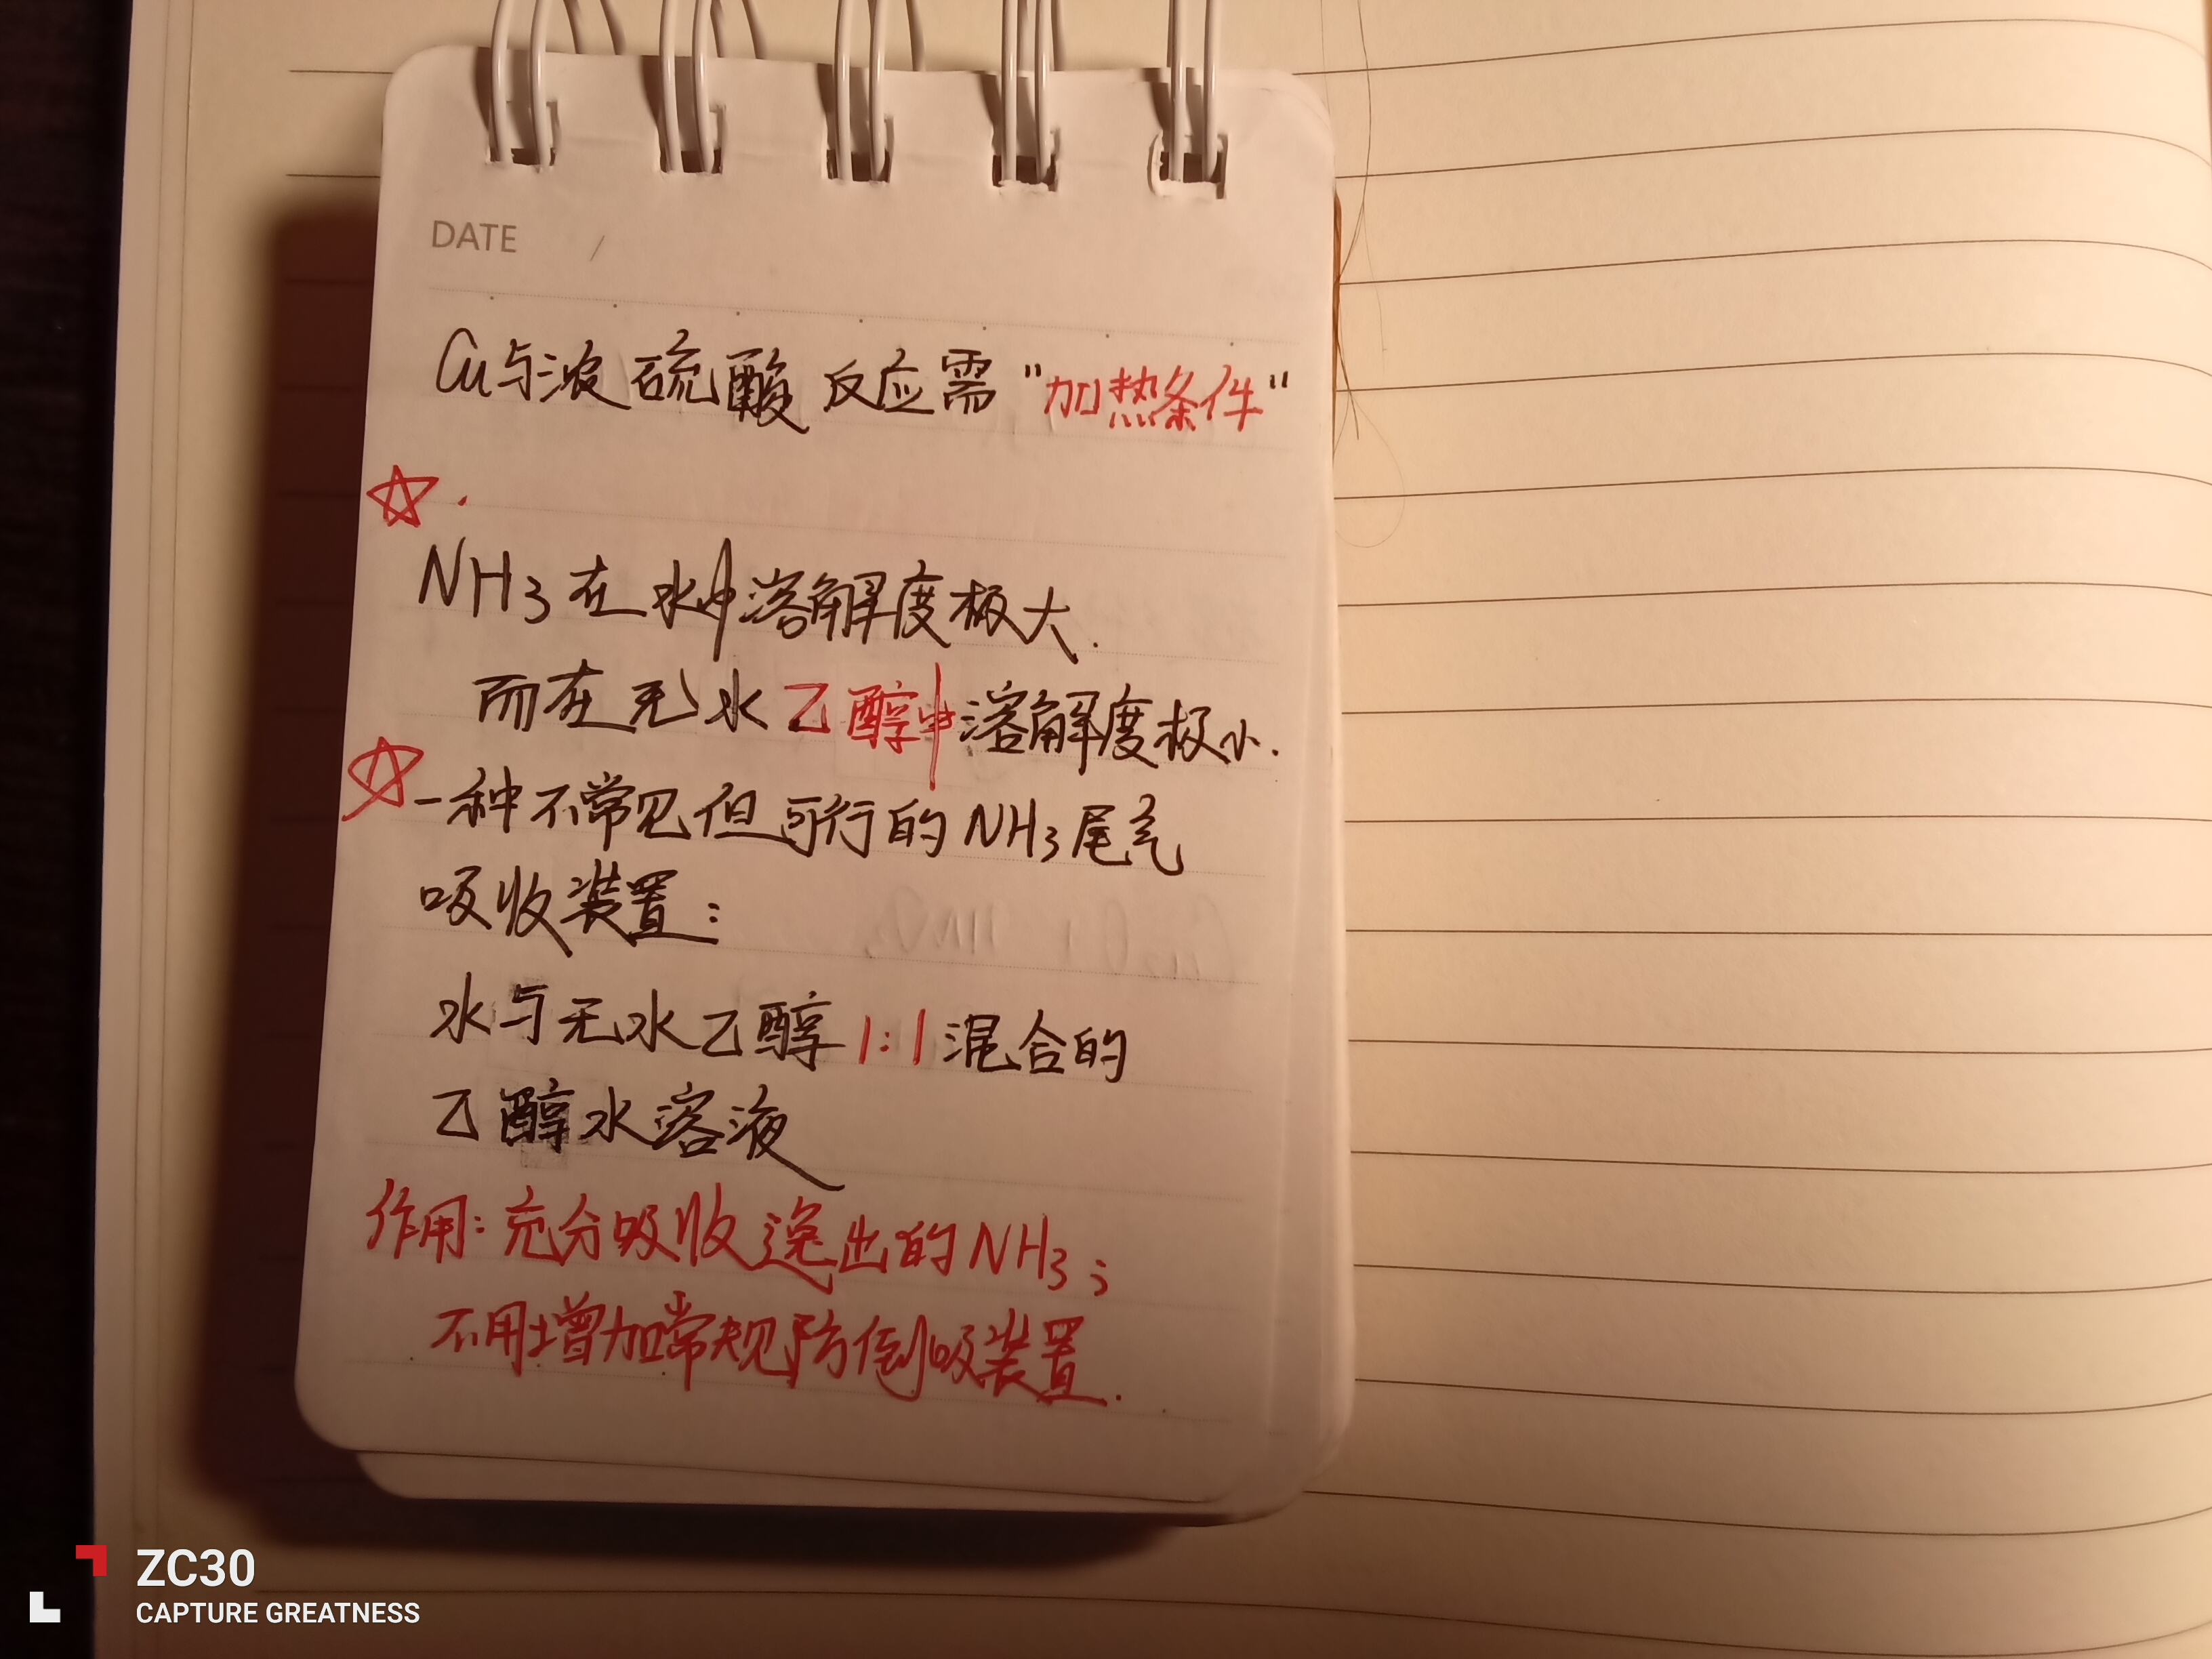 DATE /
Cu与浓硫酸反应需"加热条件"
NH3在水中溶解度极大.
而在无水乙醇中溶解度极小.
一种不常见但可行的NH3尾气
吸收装置:
水与无水乙醇1:1混合的
乙醇水溶液
作用:充分吸收逸出的NH3;
不用增加常规防倒吸装置.
ZC30
CAPTURE GREATNESS